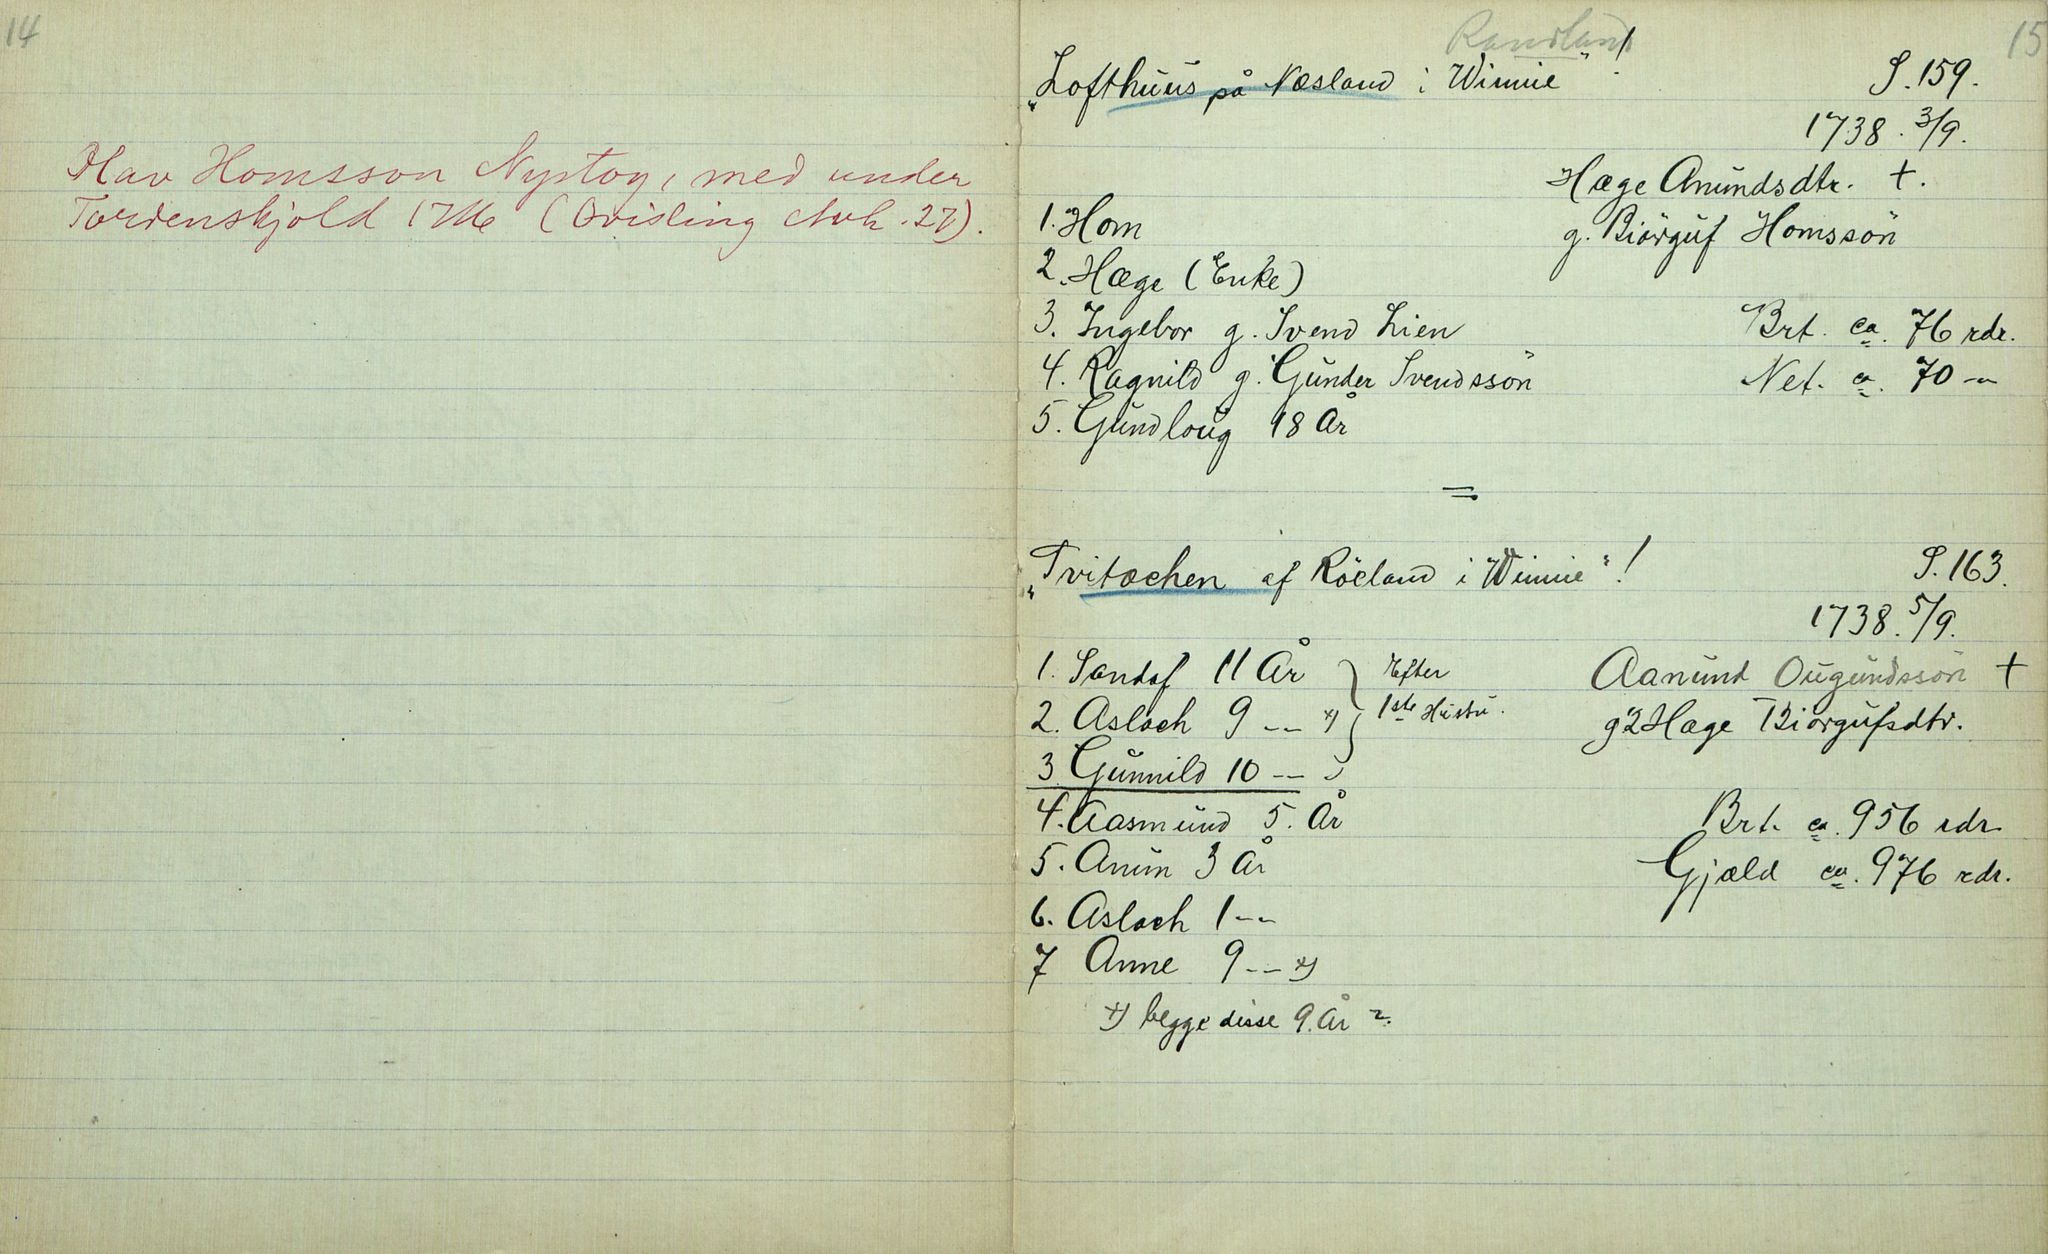 14
Olav Homsson Nystog, med under
Tordenskjold 1716 (Qvisling Avh. 27).
15
Randland
"Lofthuus på Næsland i Winnie"!
S. 159.
1738. 3/9.
Hæge Anundsdtr. +.
g. Biörguf Homssön
1. Hom
2. Hæge (Enke)
3. Ingebor g. Svend Lien
4. Ragnild g. Gunder Svendssön
5. Gundloug 18 År
Brt. ca. 76 rdr.
Net. ca. 70 -"-
=
"Tvitæchen af Röeland i Winnie"!
S. 163.
1738. 5/9.
Aanund Ougundssön +
g2 Hæge Biörgufsdtr.
1. Sandof 11 År
2. Asloch 9 -"- x)
3 Gunnild 10 -"-
Efter
1ste Hustu.
4. Aasmund 5. År
5. Anun 3 År
6. Asloch 1 -"-
7 Anne 9 -"- x)
x) begge disse 9. År ?.
Brt. ca. 956 rdr
Gjæld ca. 976 rdr.